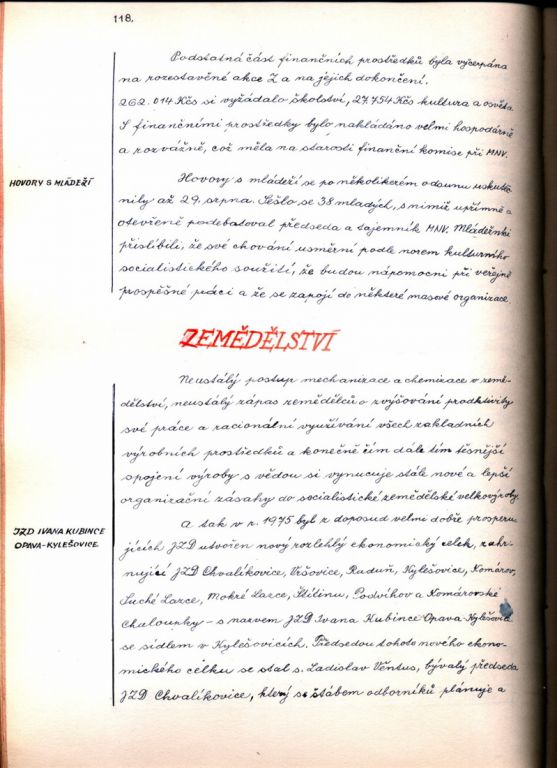 118.
Podstatná část finančních prostředků byla vyčerpána
na rozestavěné akce Z a na jejich dokončení.
262.014 Kčs si vyžádalo školství, 27.754 Kčs kultura a osvěta
S finančními prostředky bylo nakládáno velmi hospodárně
a rozvážně, což měla na starosti finanční komise při MNV.
HOVORY S MLÁDEŽÍ
Hovory s mládeží se po několikerém odsunu uskuteč-
nily až 29. srpna. Sešlo se 38 mladých, s nimiž upřímně a
otevřeně podebatoval předseda a tajemník MNV. Mládežníci
přislíbili, že své chování usměrní podle norem kulturního
socialistického soužití, že budou nápomocni při veřejně
prospěšné práci a že se zapojí do některé masové organizace.
ZEMĚDĚLSTVÍ
Neustálý postup mechanizace a chemizace v země-
dělství, neustálý zápas zemědělců o zvyšování produktivity
své práce a racionální využívání všech základních
výrobních prostředků a konečně čím dále tím těsnější
spojení výroby s vědou si vynucuje stále nové a lepší
organizační zásahy do socialistické zemědělské velkovýroby.
JZD IVANA KUBINCE
OPAVA-KYLEŠOVICE.
A tak v r. 1975 byl z doposud velmi dobře prosperu-
jících JZD utvořen nový rozlehlý ekonomický celek, zahr-
nující JZD Chvalíkovice, Vršovice, Raduň, Kylešovice, Komárov,
Suché Lazce, Mokré Lazce, Štítinu, Podvihov a Komárovské
Chaloupky - s názvem JZD Ivana Kubince Opava Kylešovice
se sídlem v Kylešovicích. Předsedou tohoto nového ekono-
mického celku se stal s. Ladislav Věntus, bývalý předseda
JZD Chvalíkovice, který se štábem odborníků plánuje a